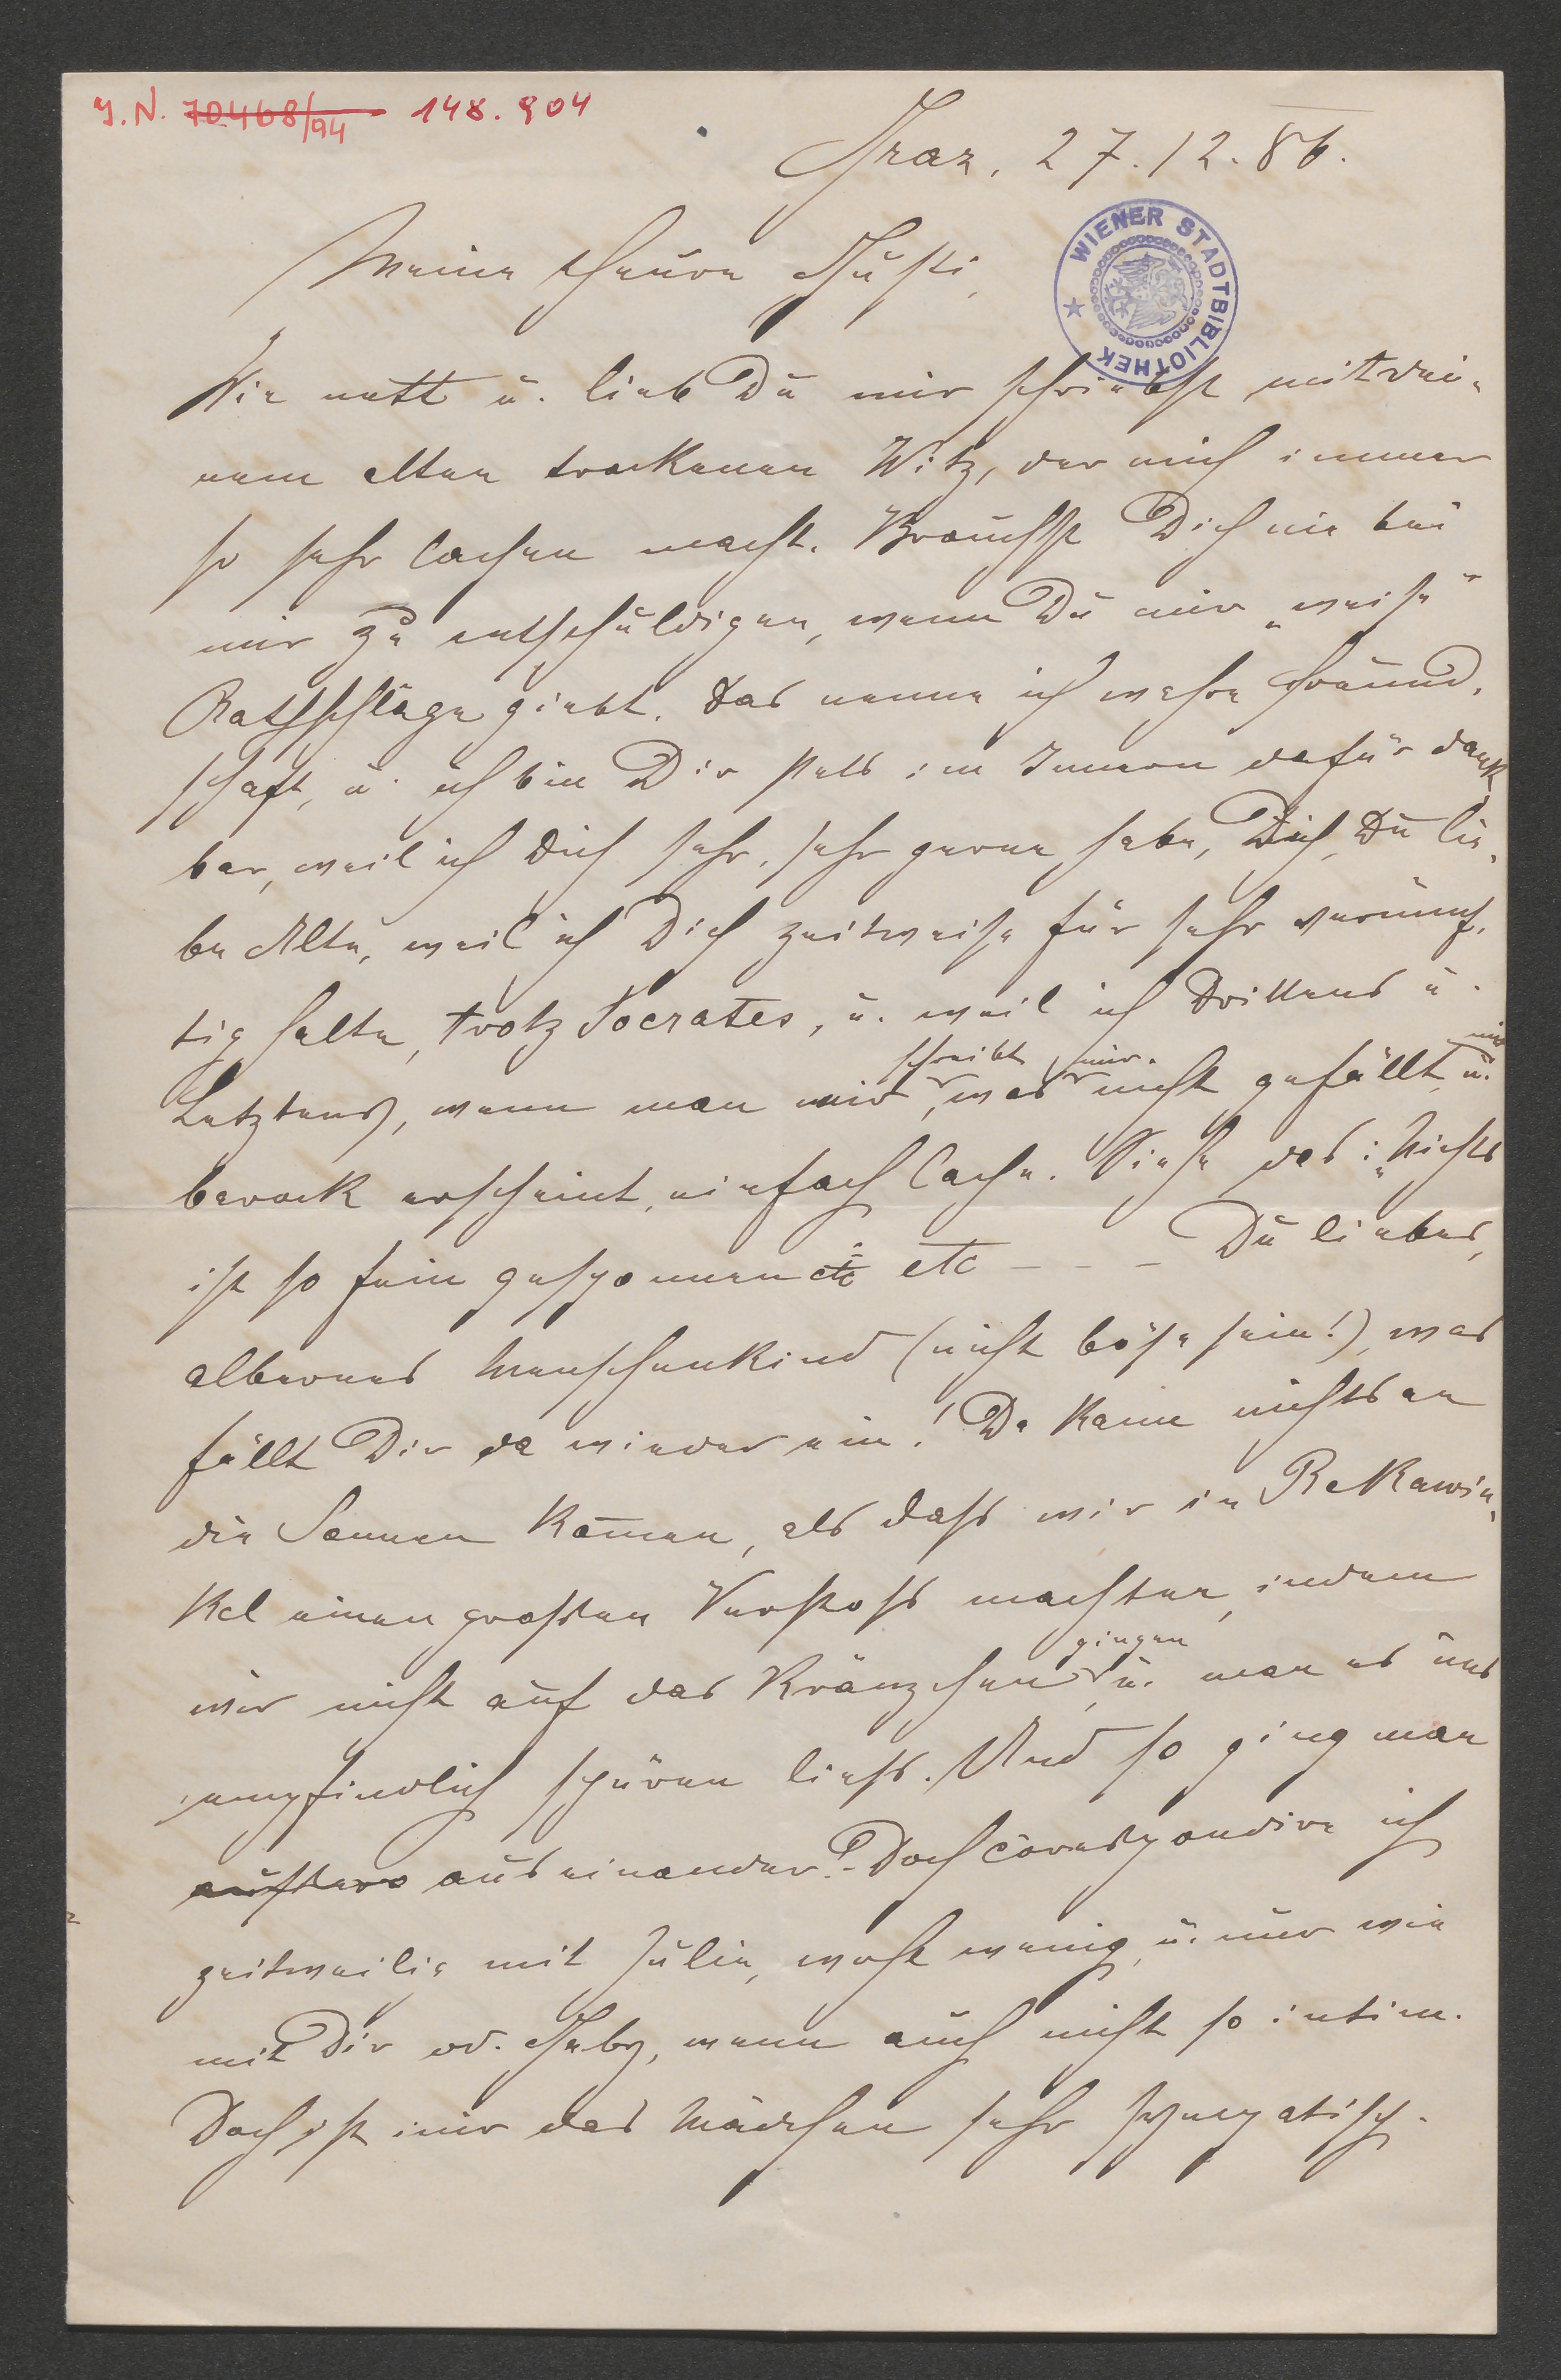 J.N. 70468/94 148.904
Graz, 27.12.86.
WIENER STADTBIBLIOTHEK
Meine theure Gusti,
Wie nett u. lieb Du mir schriebst mit dei-
nem alten trockenen Witz, der mich immer
so sehr lachen macht. Brauchst Dich nie bei
mir zu entschuldigen, wenn Du mir „weise"
Rathschläge giebt. Das nenne ich wahre Freund-
schaft, u. ich bin Dir stets im Innern dafür dank-
bar, weil ich Dich sehr, sehr gerne habe, Dich, Du lie-
be Alte, weil ich Dich zeitweise für sehr vernünf-
tig halte, trotz Socrates, u. weil ich Drittens u.
schreibt mir mir
Letztens, wenn man mir, was nicht gefällt u.
barock erscheint, einfach lache. Siehe das: „Nichts
ist so fein gesponnen etc etc - - - Du liebes,
albernes Menschenkind (nicht böse sein!), was
fällt Dir da wieder ein! Da kann nichts an
die Sonnen kommen, als dass wir in Rekawin-
kel einen grossen Verstoss machten, indem
gingen
wir nicht auf das Kränzchen u. man es uns
empfindlich spüren liess. Und so ging man
auseinander! – Doch correspondire ich
zeitweilig mit Julie, wohl wenig, u. nur wie
mit Dir od. Gaby, wenn auch nicht so intim.
Doch ist mir das Mädchen sehr sympatisch.